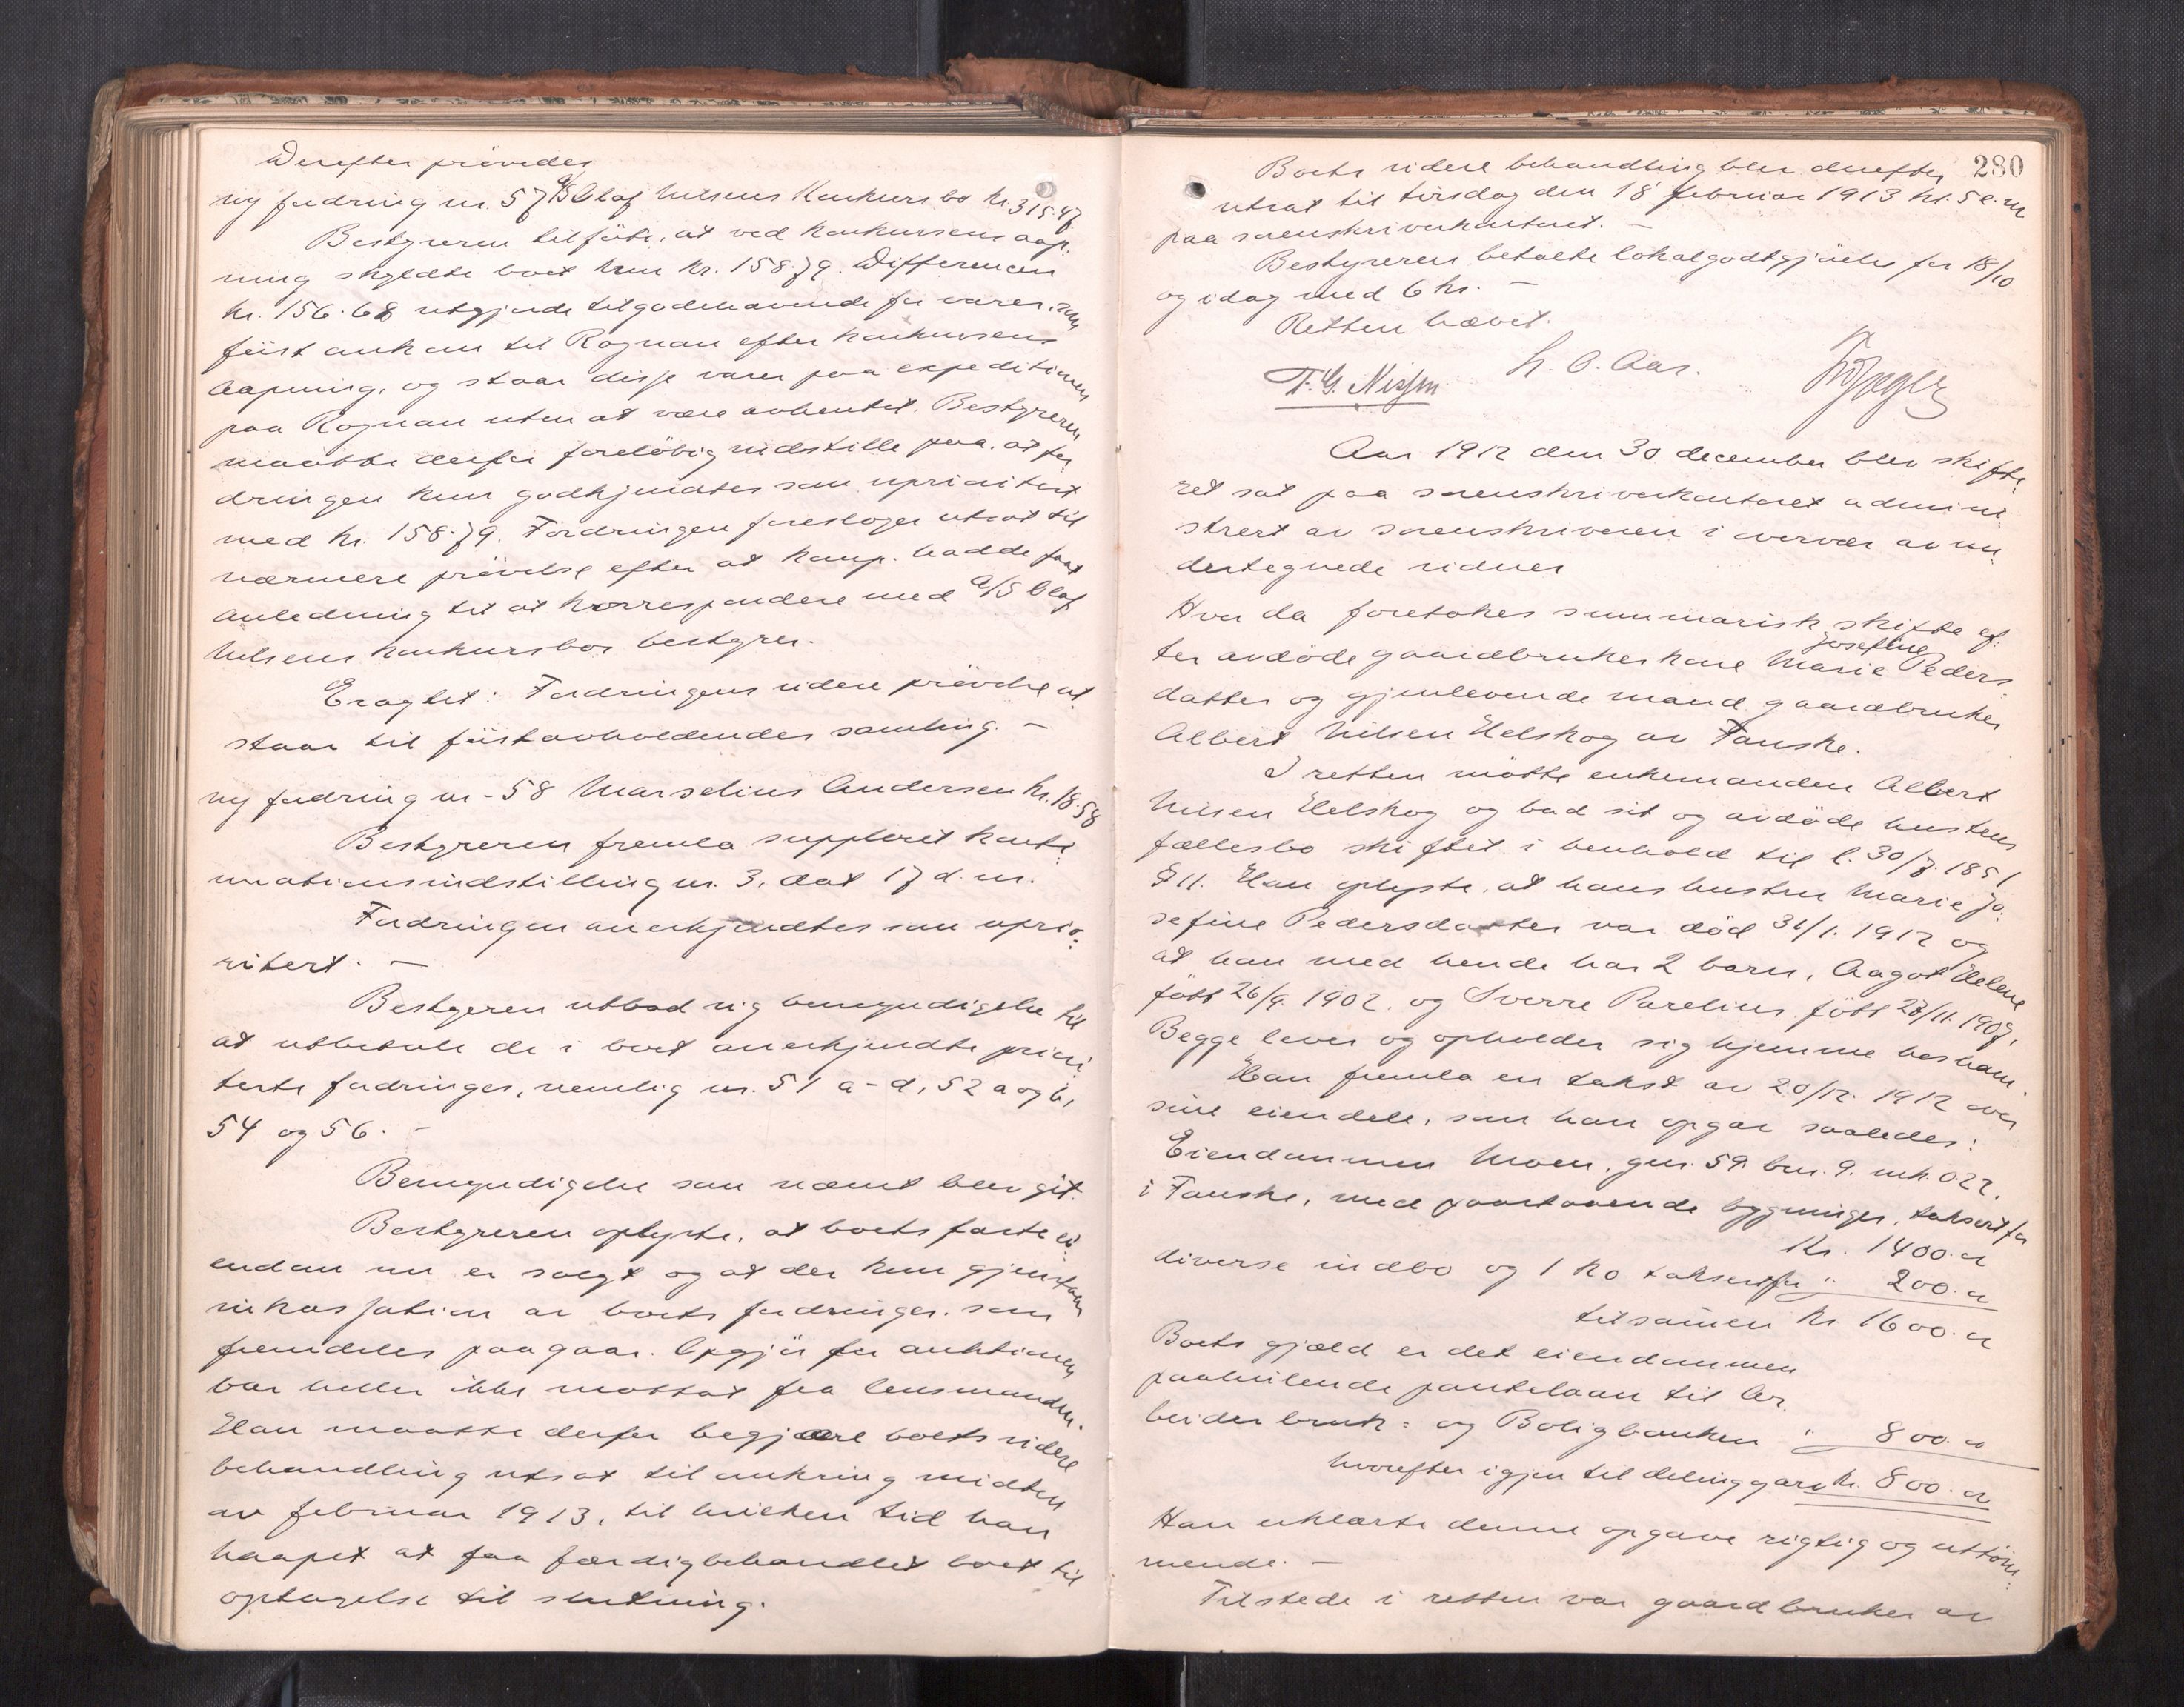 Derefter prövedes
ny fordring nr. 57 A/S Olaf Nilsens Konkursbo kr. 315.47
Bestyreren tilföiet, at ved konkursens aap-
ning skyldte boet kun kr. 158.79. Differencen
kr. 156.68 utgjorde tilgodehavende for varer, som
först ankom til Rognan efter konkursens
aapning, og staar disse varer paa expeditionen
paa Rognan uten at være avhentet. Bestyreren
maatte derfor foreløbig indstille paa, at for-
dringen kun godkjendtes som uprioritert
med kr. 158.79. Fordringen foresloges utsat til
nærmere prövelse efter at komp. hadde faat
anledning til at korrespondere med A/S Olaf
Nilsens konkursbos bestyrer.
Eragtet: Fordringens videre prövelse ut-
staar til förstavholdendes samling. –
ny fordring nr. 58 Marselius Andersen kr. 18.58
Bestyreren fremla suppleret konti-
nuationsindstilling nr. 3, dat 17 d. m.
Fordringen anerkjendtes som uprio-
ritert. –
Bestyreren utbad sig bemyndigelse til
at utbetale de i boet anerkjendte priori-
terte fordringer, nemlig nr. 51 a-d, 52 a og b,
54 og 56. –
Bemyndigelse som nævnt blev git.
Bestyreren oplyste, at boets faste ei-
endom nu er solgt og at der kun gjenstaar
inkassation av boets fordringer, som
fremdeles paagaar. Opgjör for auktionen
var heller ikke mottat fra lensmanden.
Han maatte derfor begjære boets videre
behandling utsat til omkring midten
av februar 1913, til hvilken tid han
haapet at faa færdigbehandlet boet til
optagelse til slutning.
280
Boets videre behandling blev derefter
utsat til tirsdag den 18 februar 1913 kl. 5 e.m.
paa sorenskriverkontoret. –
Bestyreren betalte lokalgodtgjörelse for 18/10
og idag med 6 kr. –
Retten hævet.
F. G. Nissen. L. O. Aas.
Aar 1912 den 30 december blev skifte-
ret sat paa sorenskriverkontoret admini-
strert av sorenskriveren i overvær av un-
dertegnede vidner
Hvor da foretokes summarisk skifte ef-
ter avdöde gaardbrukerkone Marie Josefine Peders-
datter og gjenlevende mand gaardbruker
Albert Nilsen Helskog av Fauske.
I retten mötte enkemanden Albert
Nilsen Helskog og bad sit og avdöde hustrus
fællesbo skiftet i henhold til l. 30/7. 1851
§ 11. Han oplyste, at hans hustru Marie Jo-
sefine Pedersdatter var död 31/1. 1912 og
at han med hende har 2 barn, Aagot Helene
född 26/9. 1902. og Sverre Parelius född 28/11. 1907.
Begge lever og opholder sig hjemme hos ham.
Han fremla en takst av 20/12. 1912 over
sine eiendele, som han opgav saaledes:
Eiendommen Moen, gnr. 59. bnr. 9. mk. 0.22.
i Fauske, med paastaaende bygninger, taksert for
Kr. 1400.00
diverse indbo og 1 ko taksert for " 200.00
tilsammen kr 1600.00
Boets gjæld er det eiendommen
paahvilende pantelaan til Ar-
beiderbruk- og Boligbanken " 800.00
hvorefter igjen til deling gaar kr. 800.00
Han erklærte denne opgave rigtig og uttöm-
mende. –
Tilstede i retten var gaardbruker av